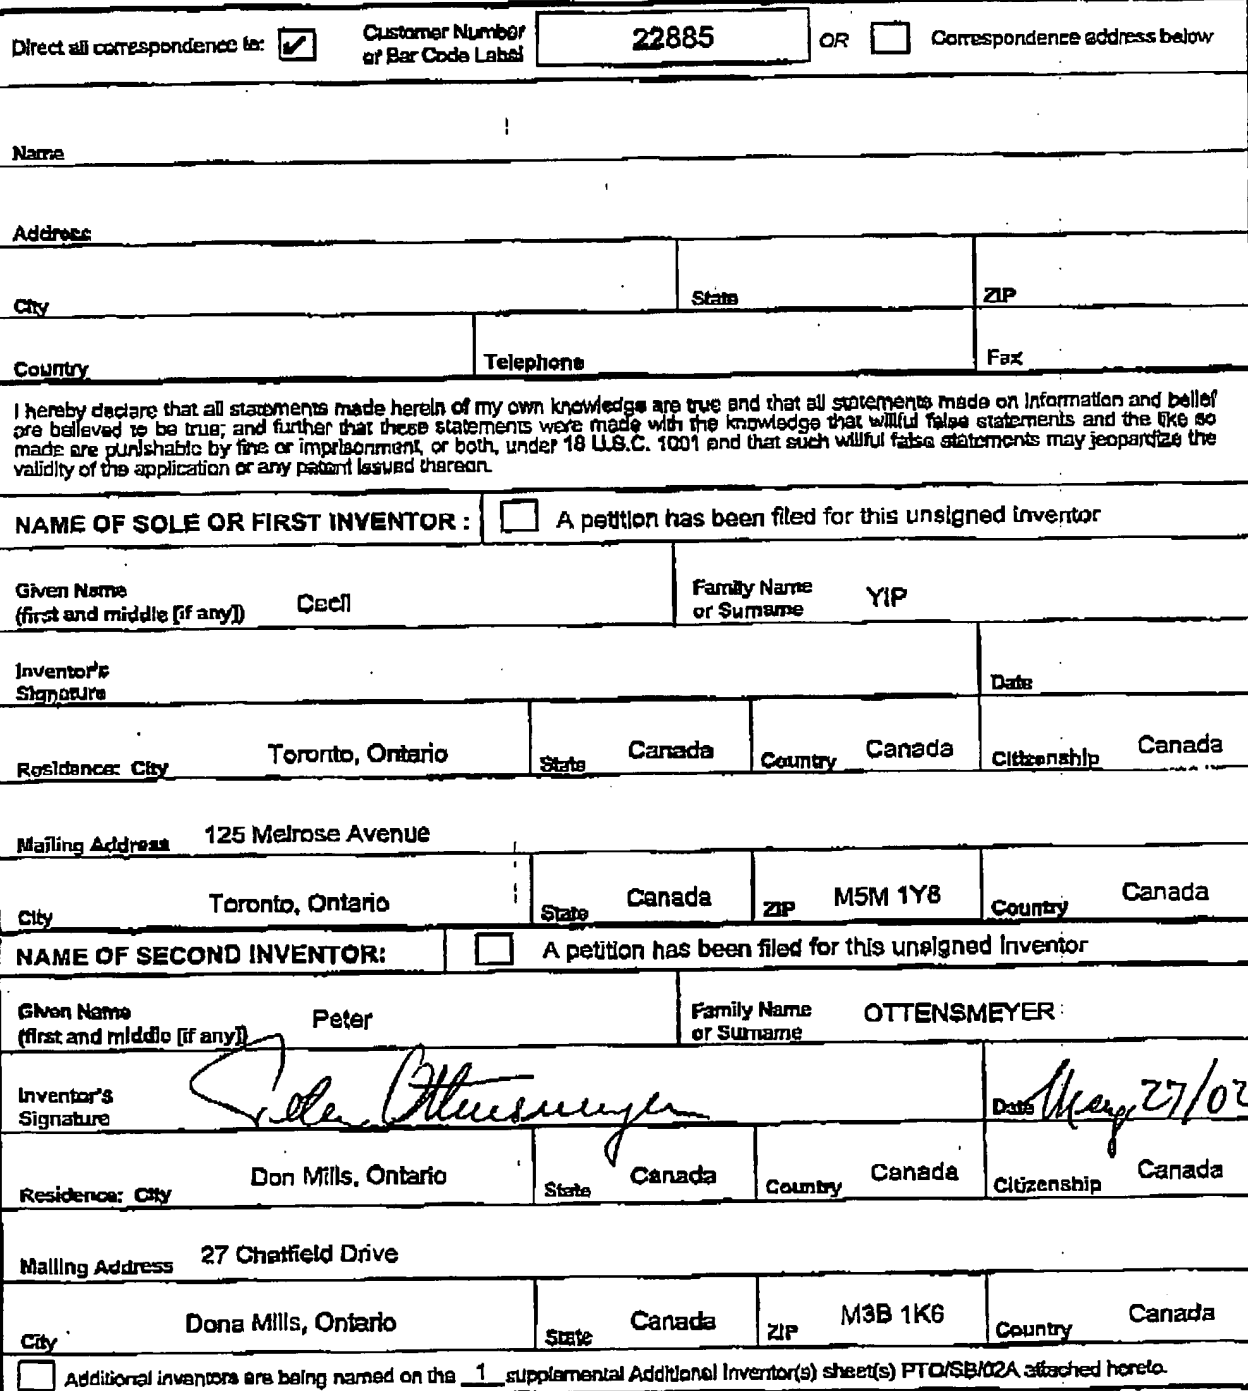 Direct all correspondence to: ✔ Customer Number or Bar Code Label 22885 OR Correspondence address below
Name
Address
City State ZIP
Country Telephone Fax
I hereby declare that all statements made herein of my own knowledge are true and that all statements made on information and belief
are believed to be true; and further that these statements were made with the knowledge that willful false statements and the like so
made are punishable by fine or imprisonment, or both, under 18 U.S.C. 1001 and that such willful false statements may jeopardize the
validity of the application or any patent issued thereon.
NAME OF SOLE OR FIRST INVENTOR : A petition has been filed for this unsigned inventor
Given Name (first and middle [if any]) Cecil Family Name or Surname YIP
Inventor's Signature Date
Residence: City Toronto, Ontario State Canada Country Canada Citizenship Canada
Mailing Address 125 Melrose Avenue
City Toronto, Ontario State Canada ZIP M5M 1Y8 Country Canada
NAME OF SECOND INVENTOR: A petition has been filed for this unsigned inventor
Given Name (first and middle [if any]) Peter Family Name or Surname OTTENSMEYER
Inventor's Signature Peter Ottensmeyer Date 27/02
Residence: City Don Mills, Ontario State Canada Country Canada Citizenship Canada
Mailing Address 27 Chatfield Drive
City Dona Mills, Ontario State Canada ZIP M3B 1K6 Country Canada
Additional inventors are being named on the 1 supplemental Additional Inventor(s) sheet(s) PTO/SB/02A attached hereto.